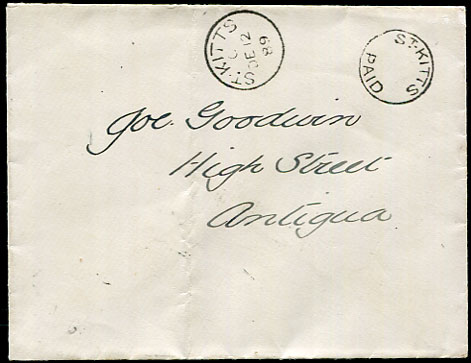 ST·KITTS
C
DE 12
89
ST·KITTS
PAID
Joe. Goodwin
High Street
Antigua